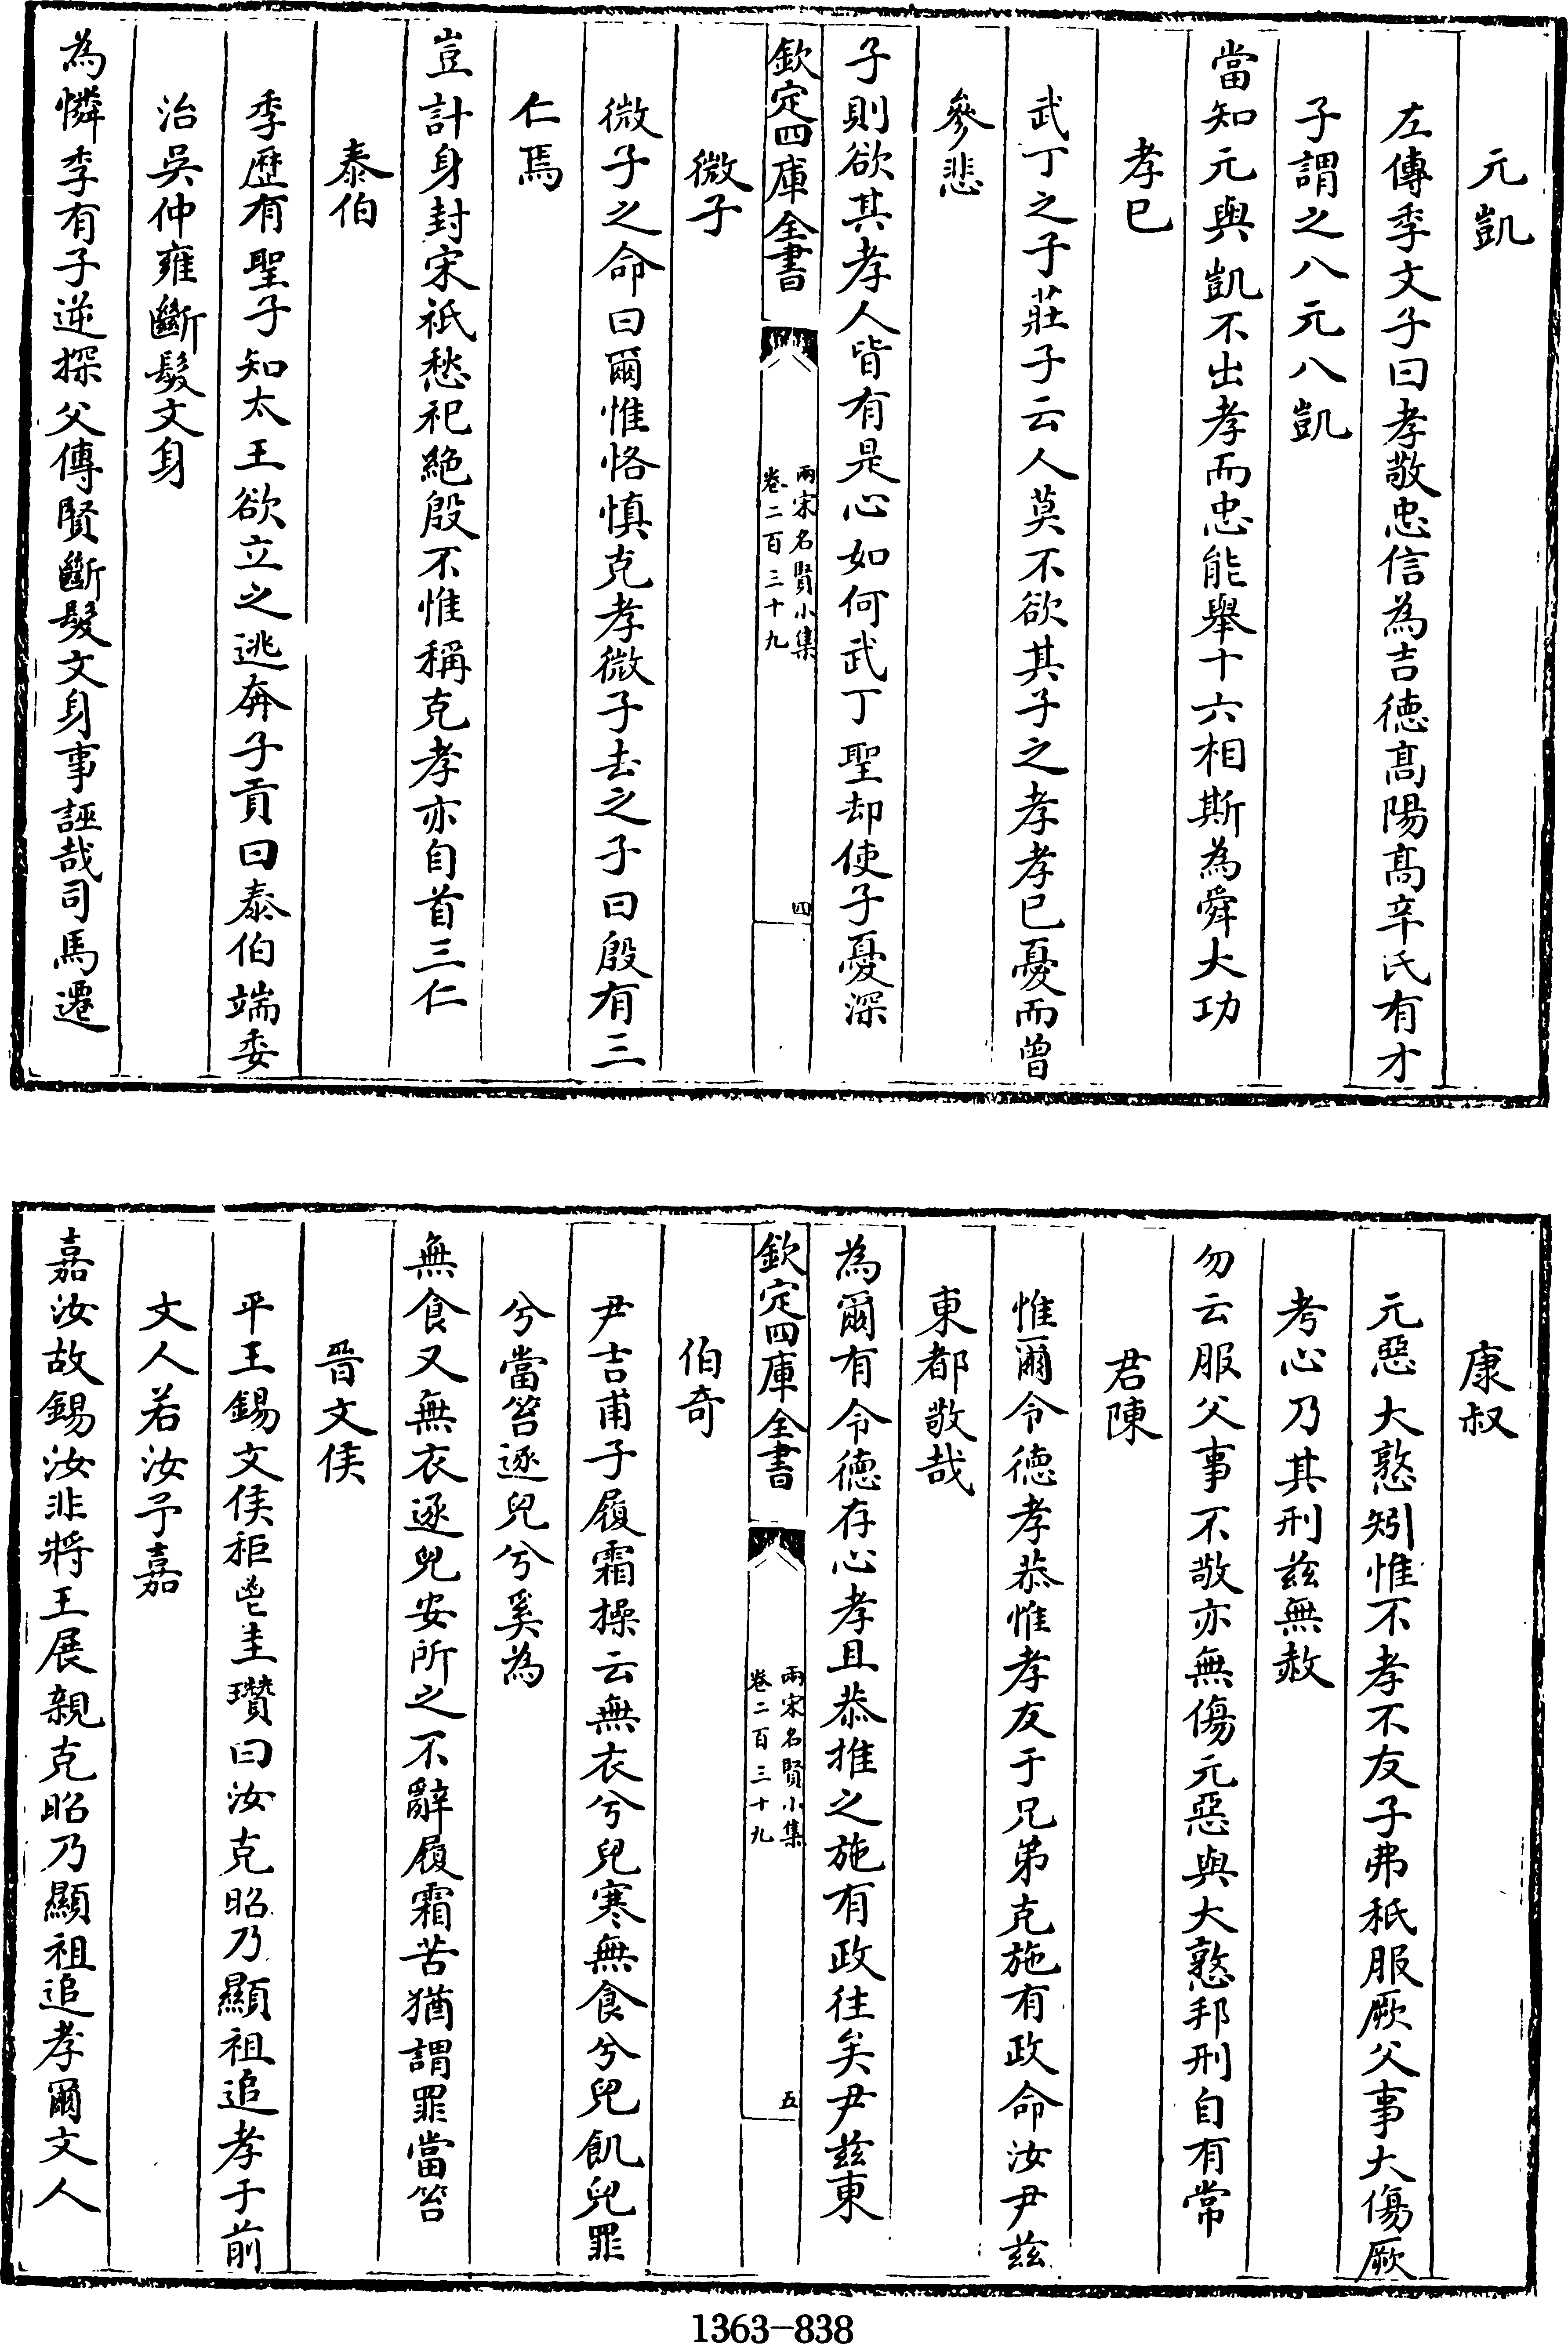 元凱
左傳季文子曰孝敬忠信為吉德髙陽髙辛氏有才
子謂之八元八凱
當知元與凱不出孝而忠能舉十六相斯為舜大功
孝已
武丁之子莊子云人莫不欲其子之孝孝已憂而曾
參悲
子則欲其孝人皆有是心如何武丁聖却使子憂深
欽定四庫全書
兩宋名賢小集
卷二百三十九
四
微子
微子之命曰爾惟恪慎克孝微子去之子曰殷有三
仁焉
豈計身封宋祇愁祀絶殷不惟稱克孝亦自首三仁
泰伯
季歷有聖子知太王欲立之逃奔子貢曰泰伯端委
治吳仲雍斷髮文身
為憐季有子逆探父傳賢斷髮文身事誣哉司馬遷
康叔
元惡大憝矧惟不孝不友子弗秪服厥父事大傷厥
考心乃其刑兹無赦
勿云服父事不敬亦無傷元惡與大憝邦刑自有常
君陳
惟爾令德孝恭惟孝友于兄弟克施有政命汝尹兹
東都敬哉
為爾有令德存心孝且恭推之施有政往矣尹兹東
欽定四庫全書
兩宋名賢小集
卷二百三十九
五
伯奇
尹吉甫子履霜操云無衣兮兒寒無食兮兒飢兒罪
兮當笞逐兒兮奚為
無食又無衣逐兒安所之不辭履霜苦猶謂罪當笞
晉文侯
平王錫文侯秬鬯圭瓚曰汝克昭乃顯祖追孝于前
文人若汝予嘉
嘉汝故錫汝非將王展親克昭乃顯祖追孝爾文人
1363-838